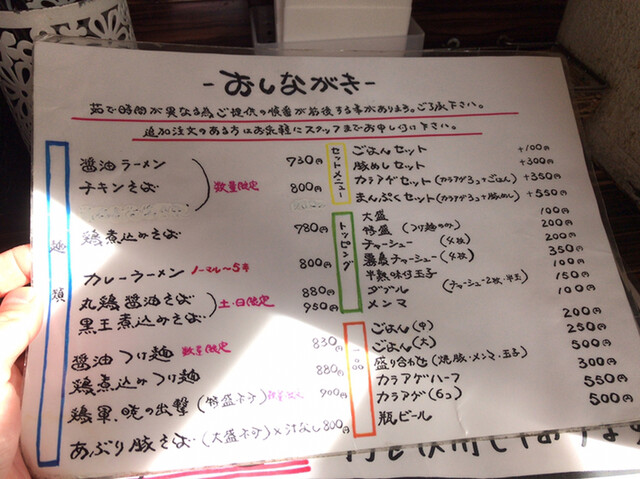 -おしながき-
茹で時間が異なる為ご提供の順番が前後する事があります。ご了承下さい。
追加注文のある方はお気軽にスタッフまでお申し付け下さい。
麺類
醤油ラーメン 730円
チキンそば 800円
数量限定
鶏煮込みそば 780円
カレーラーメン ノーマル〜5辛 800円
丸鶏醤油そば 880円
黒王煮込みそば 950円
土・日限定
醤油つけ麺 数量限定 830円
鶏煮込みつけ麺 880円
鶏軍、暁の出撃 (特盛不可) 900円
あぶり豚そば (大盛不可)×汁なし 800円
セットメニュー
ごはんセット +100円
豚めしセット +300円
カラアゲセット(カラアゲ3コ+ごはん) +350円
まんぷくセット(カラアゲ3コ+豚めし) +550円
トッピング
大盛 100円
特盛 (つけ麺のみ) 200円
チャーシュー (4枚) 200円
チャーシュー (4枚) 350円
半熟味付玉子 100円
ダブル (チャーシュー2枚・半玉) 150円
メンマ 100円
一品
ごはん (中) 200円
ごはん (大) 250円
盛り合わせ (焼豚・メンマ・玉子) 500円
カラアゲハーフ 300円
カラアゲ (6コ) 550円
瓶ビール 500円